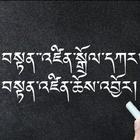 བསྟན་འཛིན་སྒྲོལ་དཀར་
བསྟན་འཛིན་ཆོས་འབྱོར།